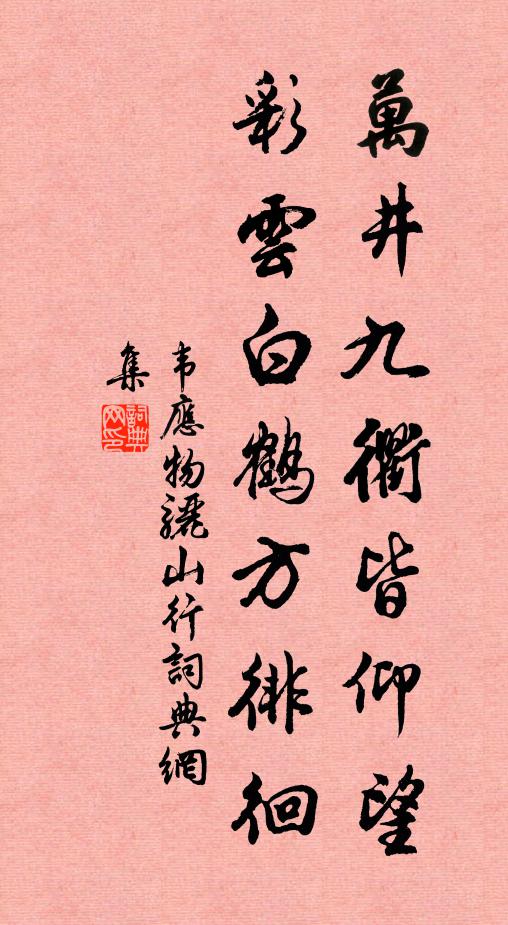 萬井九衢皆仰望
彩雲白鶴方徘徊
韦應物驪山行詞典網
集
詞典
网印